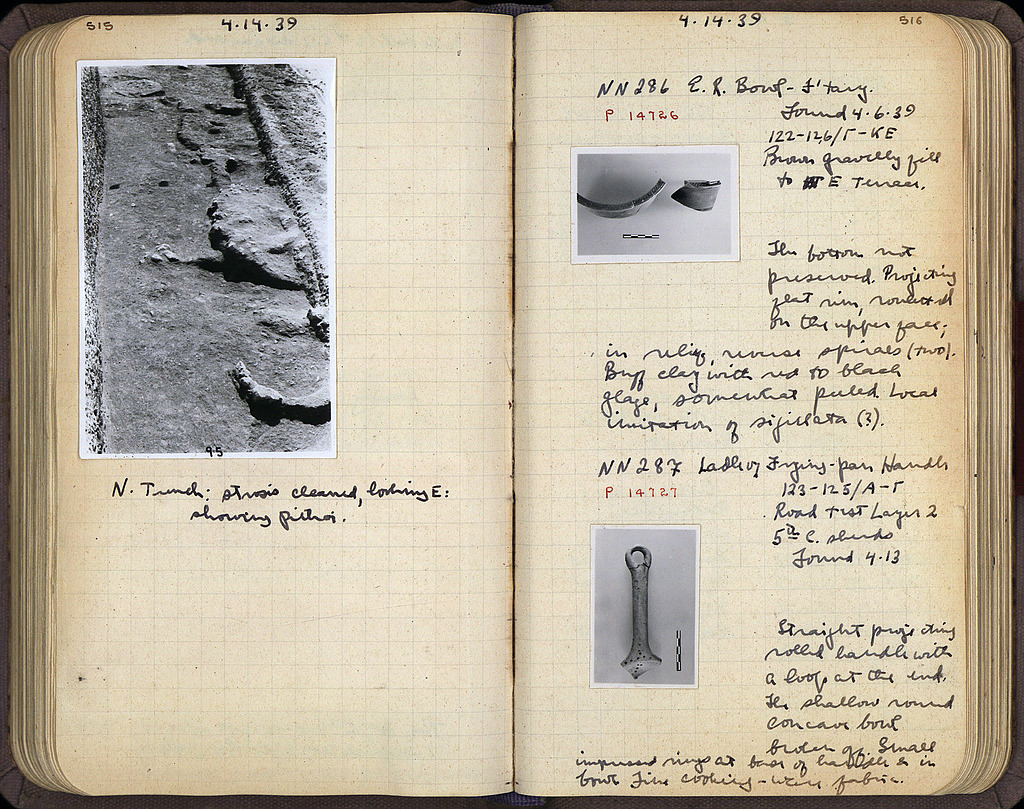 515
4.14.39
95
N. Trench: strosis cleaned, looking E:
showing pithoi.
4.14.39
516
NN 286 E. R. Bowl-
P 14726
Found 4.6.39
122-126/Γ-KE
Brown gravelly fill
to E Terrace.
The bottom not
preserved. Projecting
flat rim, rounded
on the upper face;
in relief, reverse spirals (two).
Buff clay with red to black
glaze, somewhat peeled. Local
imitation of sigillata (?).
NN 287 Ladle or Frying-pan Handle
P 14727
123-125/A-Γ
Road test Layer 2
5th C. sherds
Found 4.13
Straight projecting
rolled handle with
a loop at the end.
The shallow round
concave bowl
broken off. Small
impressed rings at base of handle & in
bowl. Fine cooking-ware fabric.